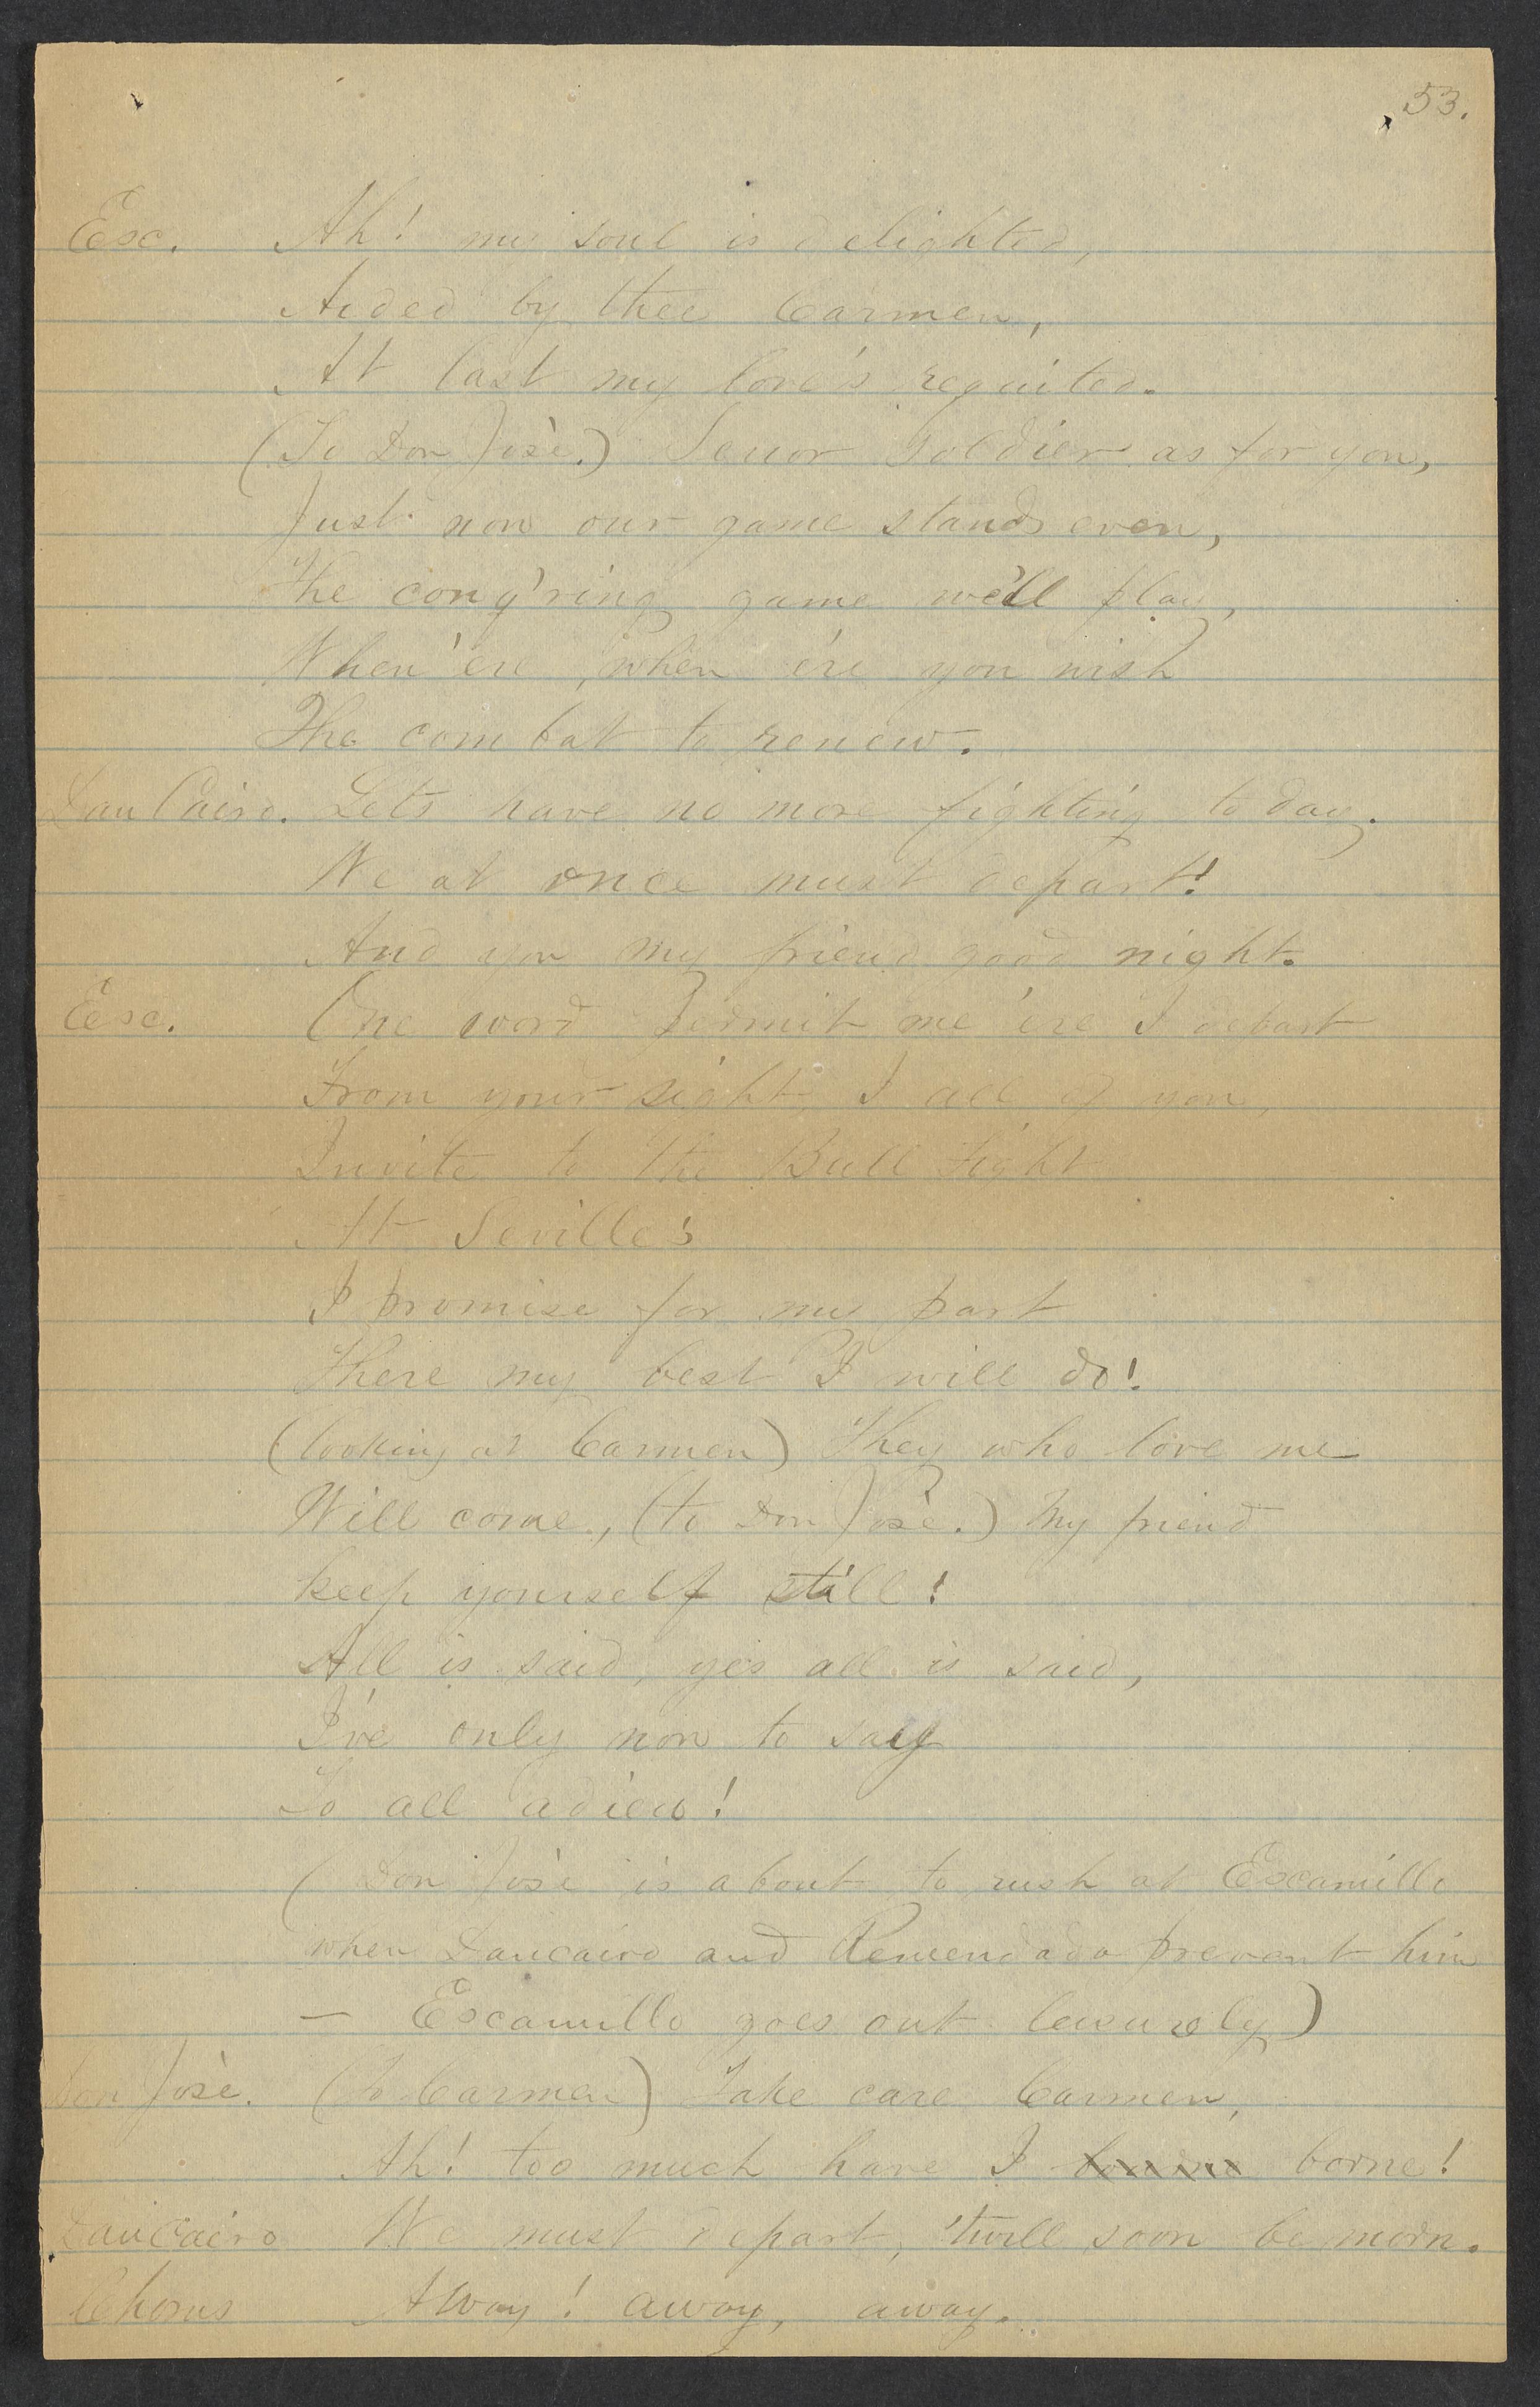 53.
Esc. Ah! my soul is delighted,
Aided by thee Carmen,
At last my love's requited.
(To Don José.) Senor Soldier as for you,
Just now our game stands even,
The conq'ring game we'll play,
When'ere, when'ere you wish
The combat to renew.
Dan Cairo. Lets have no more fighting to day.
We at once must depart!
And you my friend good night.
Esc. One word permit me 'ere I depart
From your sight, I all of you,
Invite to the Bull Fight
At Seville!
I promise for my part
There my best I will do!
(looking at Carmen) They who love me
Will come, (to Don José.) My friend
keep yourself still!
All is said, yes all is said,
I've only now to say
To all adieu!
(Don José is about to rush at Escamillo
when Dancairo and Remendado prevent him
– Escamillo goes out leisurely)
Don José. (to Carmen) Take care Carmen,
Ah! too much have I borne!
Dancairo We must depart, 'twill soon be morn.
Chorus Away! away, away.